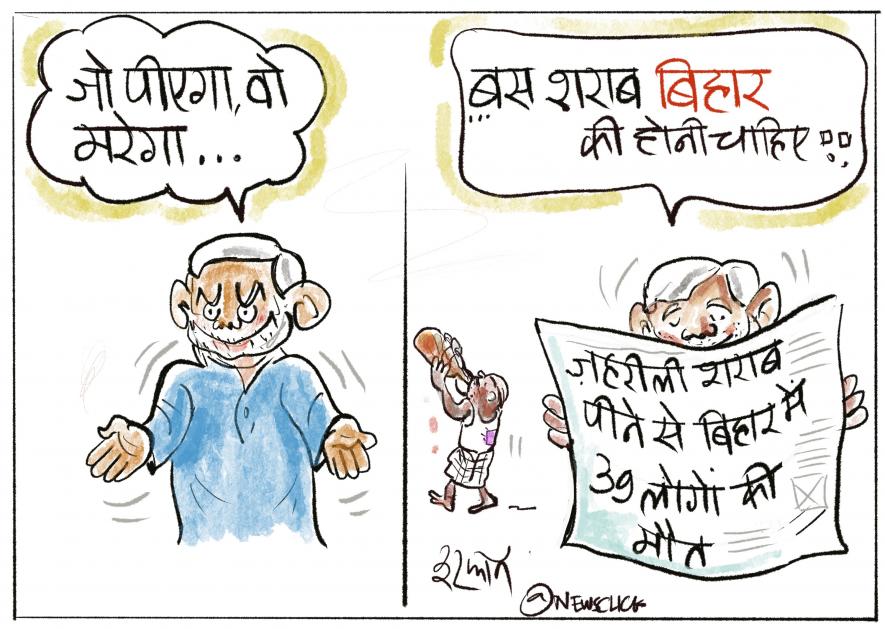 जो पीएगा, वो
मरेगा...
...बस शराब बिहार
की होनी चाहिए !!
ज़हरीली शराब
पीने से बिहार में
39 लोगों की
मौत
इरफ़ान
@NEWSCLICK